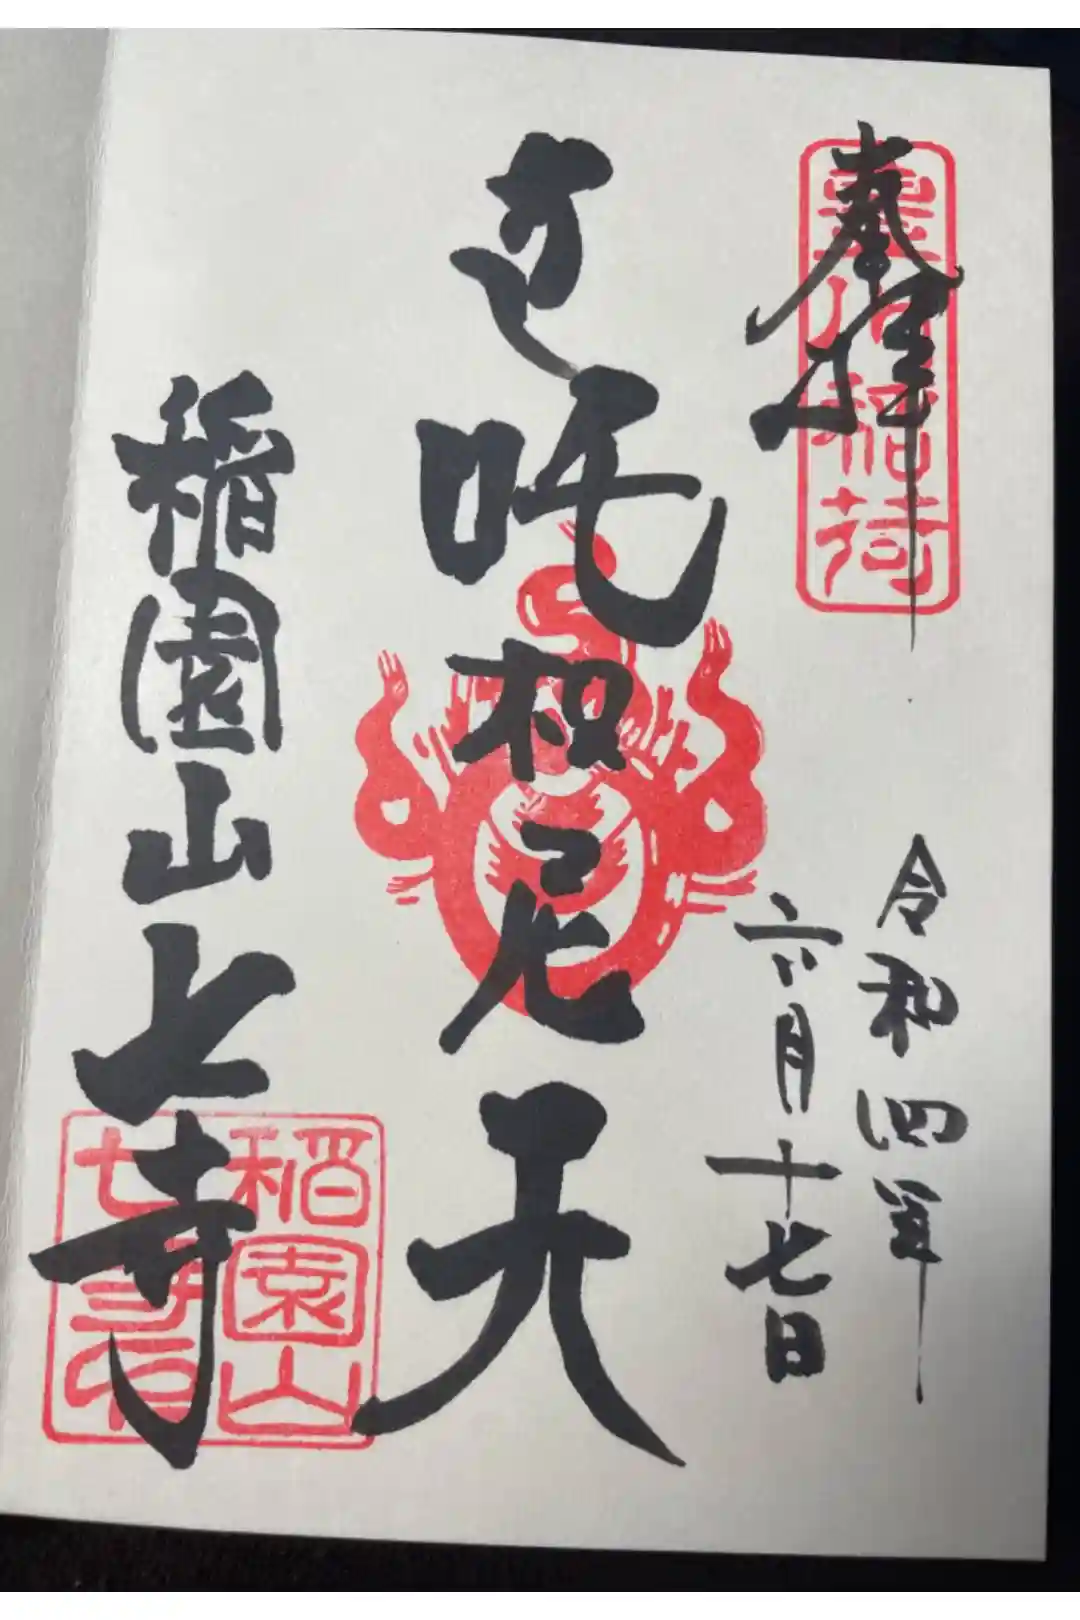 奉拝
豊川稲荷
令和四年
六月十七日
吒枳尼天
稲園山七寺
稲園山
七寺印